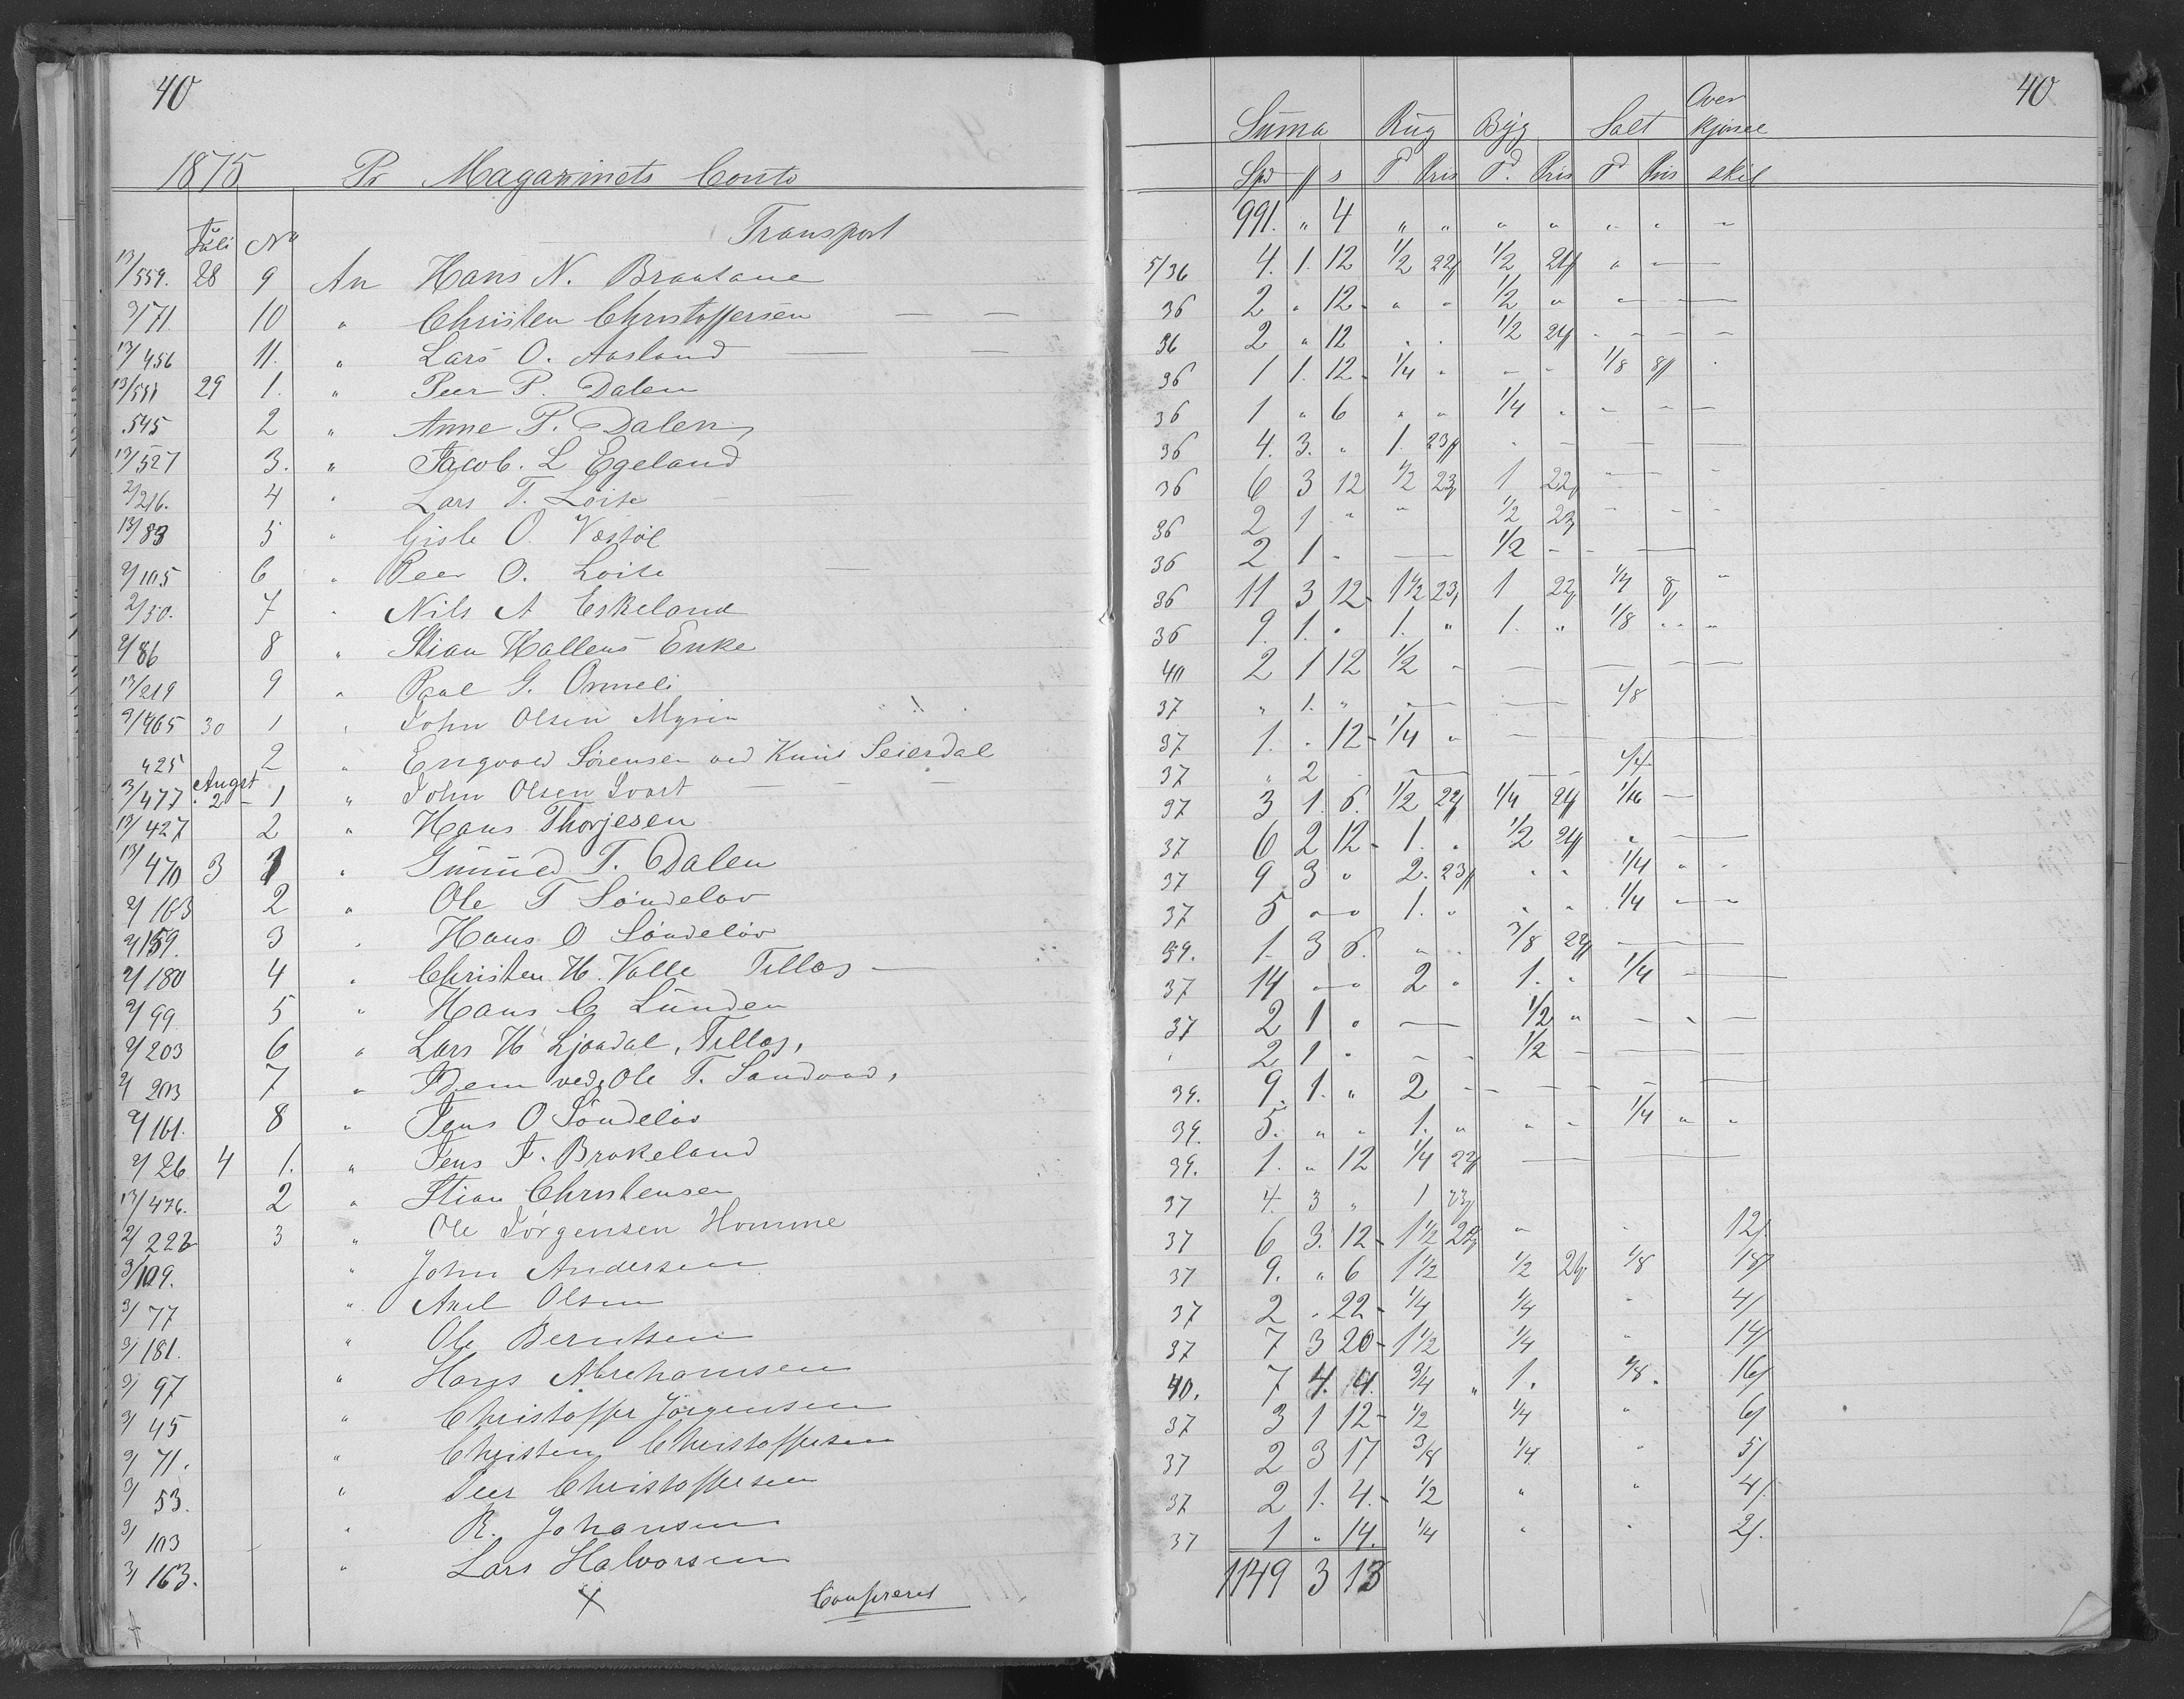 40
1875 Pr Magazinets Conto
Transport
Juli No
13/559. 28 9 An Hans N. Braatane
3/71. 10 " Christen Christoffersen
13/456 11. " Lars O. Aasland
13/551 29 1. " Peer P. Dalen
545 2 " Anne P. Dalen
13/527 3. " Jacob. L Egeland
2/216. 4 " Lars T. Loite
13/83 5 " Gisle O. Vestøl
2/105 6 " Peer O. Loite
2/50. 7 " Nils A Eskeland
2/86 8 " Stian Hallens Enke
13/219 9 " Paal G. Ormeli
9/465 30 1 " John Olsen Myren
425 2 " Engvald Sørensen ved Knud Seierdal
Augst
3/477 2 1 " John Olsen
13/427 2 " Hans Thorjesen
13/470 3 1 " Gunuld T. Dalen
2/163 2 " Ole T Söndeløv
2/159. 3 " Hans O Söndeløv
2/180 4 " Christen H. Valle Tillas
2/99 5 " Hans C Lunden
2/203 6 " Lars H Ljosdal, Tillas,
2/203 7 " Dem ved, Ole T. Sandvad,
2/161. 8 " Jens O Söndeløv
2/26 4 1. " Jens F. Brokeland
13/476. 2 " Stian Christensen
2/222 3 " Ole Jørgensen Homme
3/109. " John Andersen
3/77 " Axel Olsen
3/181. " Ole Berntsen
3/97 " Hans Abrehamsen
3/45 " Christoffer Jörgensen
3/71. " Christen Christoffersen
3/53. " Peer Christoffersen
3/103 " R. Johansen
3/163. " Lars Halvorsen
x Confereret
40
Suma Rug Byg Salt Over kjørsel
Spd ƒ s T Pris T. Pris T Pris skil
991. " 4 " " " " " " "
5/36 4. 1. 12 1/2 22ƒ 1/2 21ƒ " —
36 2 " 12 " " 1/2 " " —
36 2 " 12 " " 1/2 24ƒ - - -
36 1 1. 12 1/4 " - - 1/8 8ƒ
36 1 " 6 " " 1/4 " - - -
36 4. 3. " 1. 23ƒ - - — —
36 6 3 12 1/2 23ƒ 1 22ƒ - -
36 2 1 " " 1/2 23ƒ - - -
36 2 1 - — 1/2 - - —
36 11 3 12 1 1/2 23ƒ 1 22ƒ 1/4 8ƒ "
36 9. 1. " 1. " 1. " 1/8 " "
40 2 1 12 1/2 - — — —
37 " 1. " — — 1/8
37 1. " 12 1/4 " — —
37 " 2 - — — 1/4
37 3 1. 6. 1/2 22ƒ 1/4 21ƒ 1/16 —
37 6 2 12 1. " 1/2 21ƒ " —
37 9 3 " 2. 23ƒ " " 1/4 " "
37 5 " " 1. " " " 1/4 " "
39. 1. 3 6. " " 3/8 22ƒ — —
37 14 " " 2 " 1. " 1/4 —
37 2 1 " — 1/2 " - " -
" 2 1 " - - 1/2 - — —
39. 9. 1. " 2 - - - - —
39. 5. " " 1. " " " 1/4 " "
39. 1. " 12 1/4 22ƒ — —
37 4. 3 " 1 23ƒ
37 6 3. 12 1 1/2 22ƒ " " 12ƒ
37 9. " 6 1 1/2 1/2 21ƒ 1/8 18ƒ
37 2 " 22 1/4 1/4 " 4ƒ
37 7 3 20 1 1/2 1/4 " 14ƒ
40. 7 4. 4. 3/4 " 1. 1/8. 16ƒ
37 3 1 12 1/2 1/4 " 6ƒ
37 2 3 17 3/8 1/4 " 5ƒ
37 2 1. 4. 1/2 " " 4ƒ
37 1 " 14. 1/4 " " 2ƒ.
1149 3 13